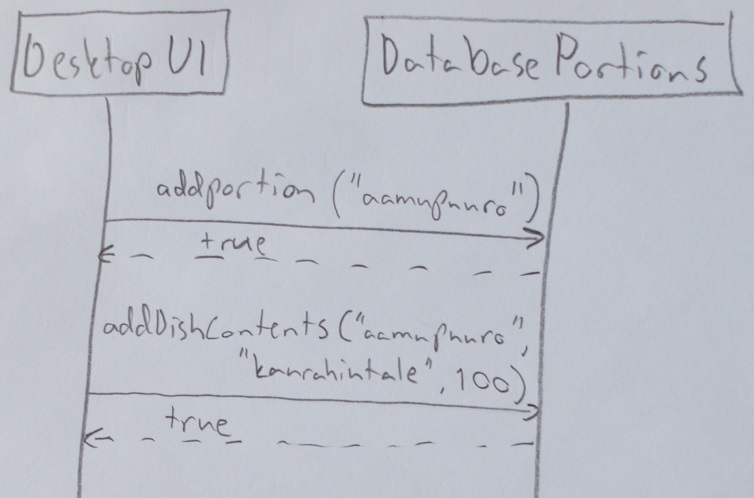 Desktop UI
Database Portions
addportion ("aamupuuro")
true
addDishContents ("aamupuuro",
"kaurahiutale", 100)
true